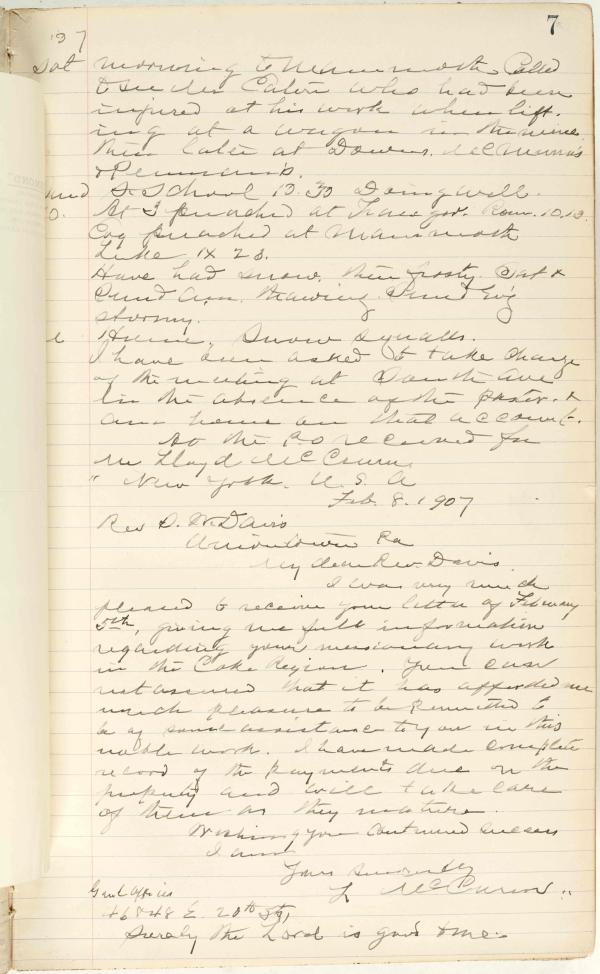 7
'07
Sat morning to Mammoth. Called
to see Mr Eaton who had been
injured at his work when lift-
ing at a wagon in the mine.
then later at Downs. McManus
& Penmans.
S. School 13. 30 Doing well.
At 3 preached at Rom. 10.13.
Evg preached at Mammoth
Luke IX 23.
Have had snow, then frosty. Sat &
Sund Aen. thawing. Sund Ev'g
stormy.
Home, Snow squalls.
I have been asked to take charge
of the meeting at South Ave
in the absence of the pastor. &
am home on that account.
At the P.O received fm
Mr Lloyd McCrum
" New York. U. S. A
Feb. 8. 1907
Rev D. W. Davis
Uniontown Pa
My dear Rev. Davis.
I was very much
pleased to receive your letter of February
5th, giving me full information
regarding your missionary work
in the Coke Region. You can
rest assured that it has afforded me
much pleasure to be permitted to
be of some assistance to you in this
noble work. I have made complete
record of the payments due on the
property and will take care
of them as they mature.
Wishing you continued success
I am
Yours sincerely
L McCrum "
Genl Offices
46 & 48 E. 20th St,
Surely the Lord is good to me.